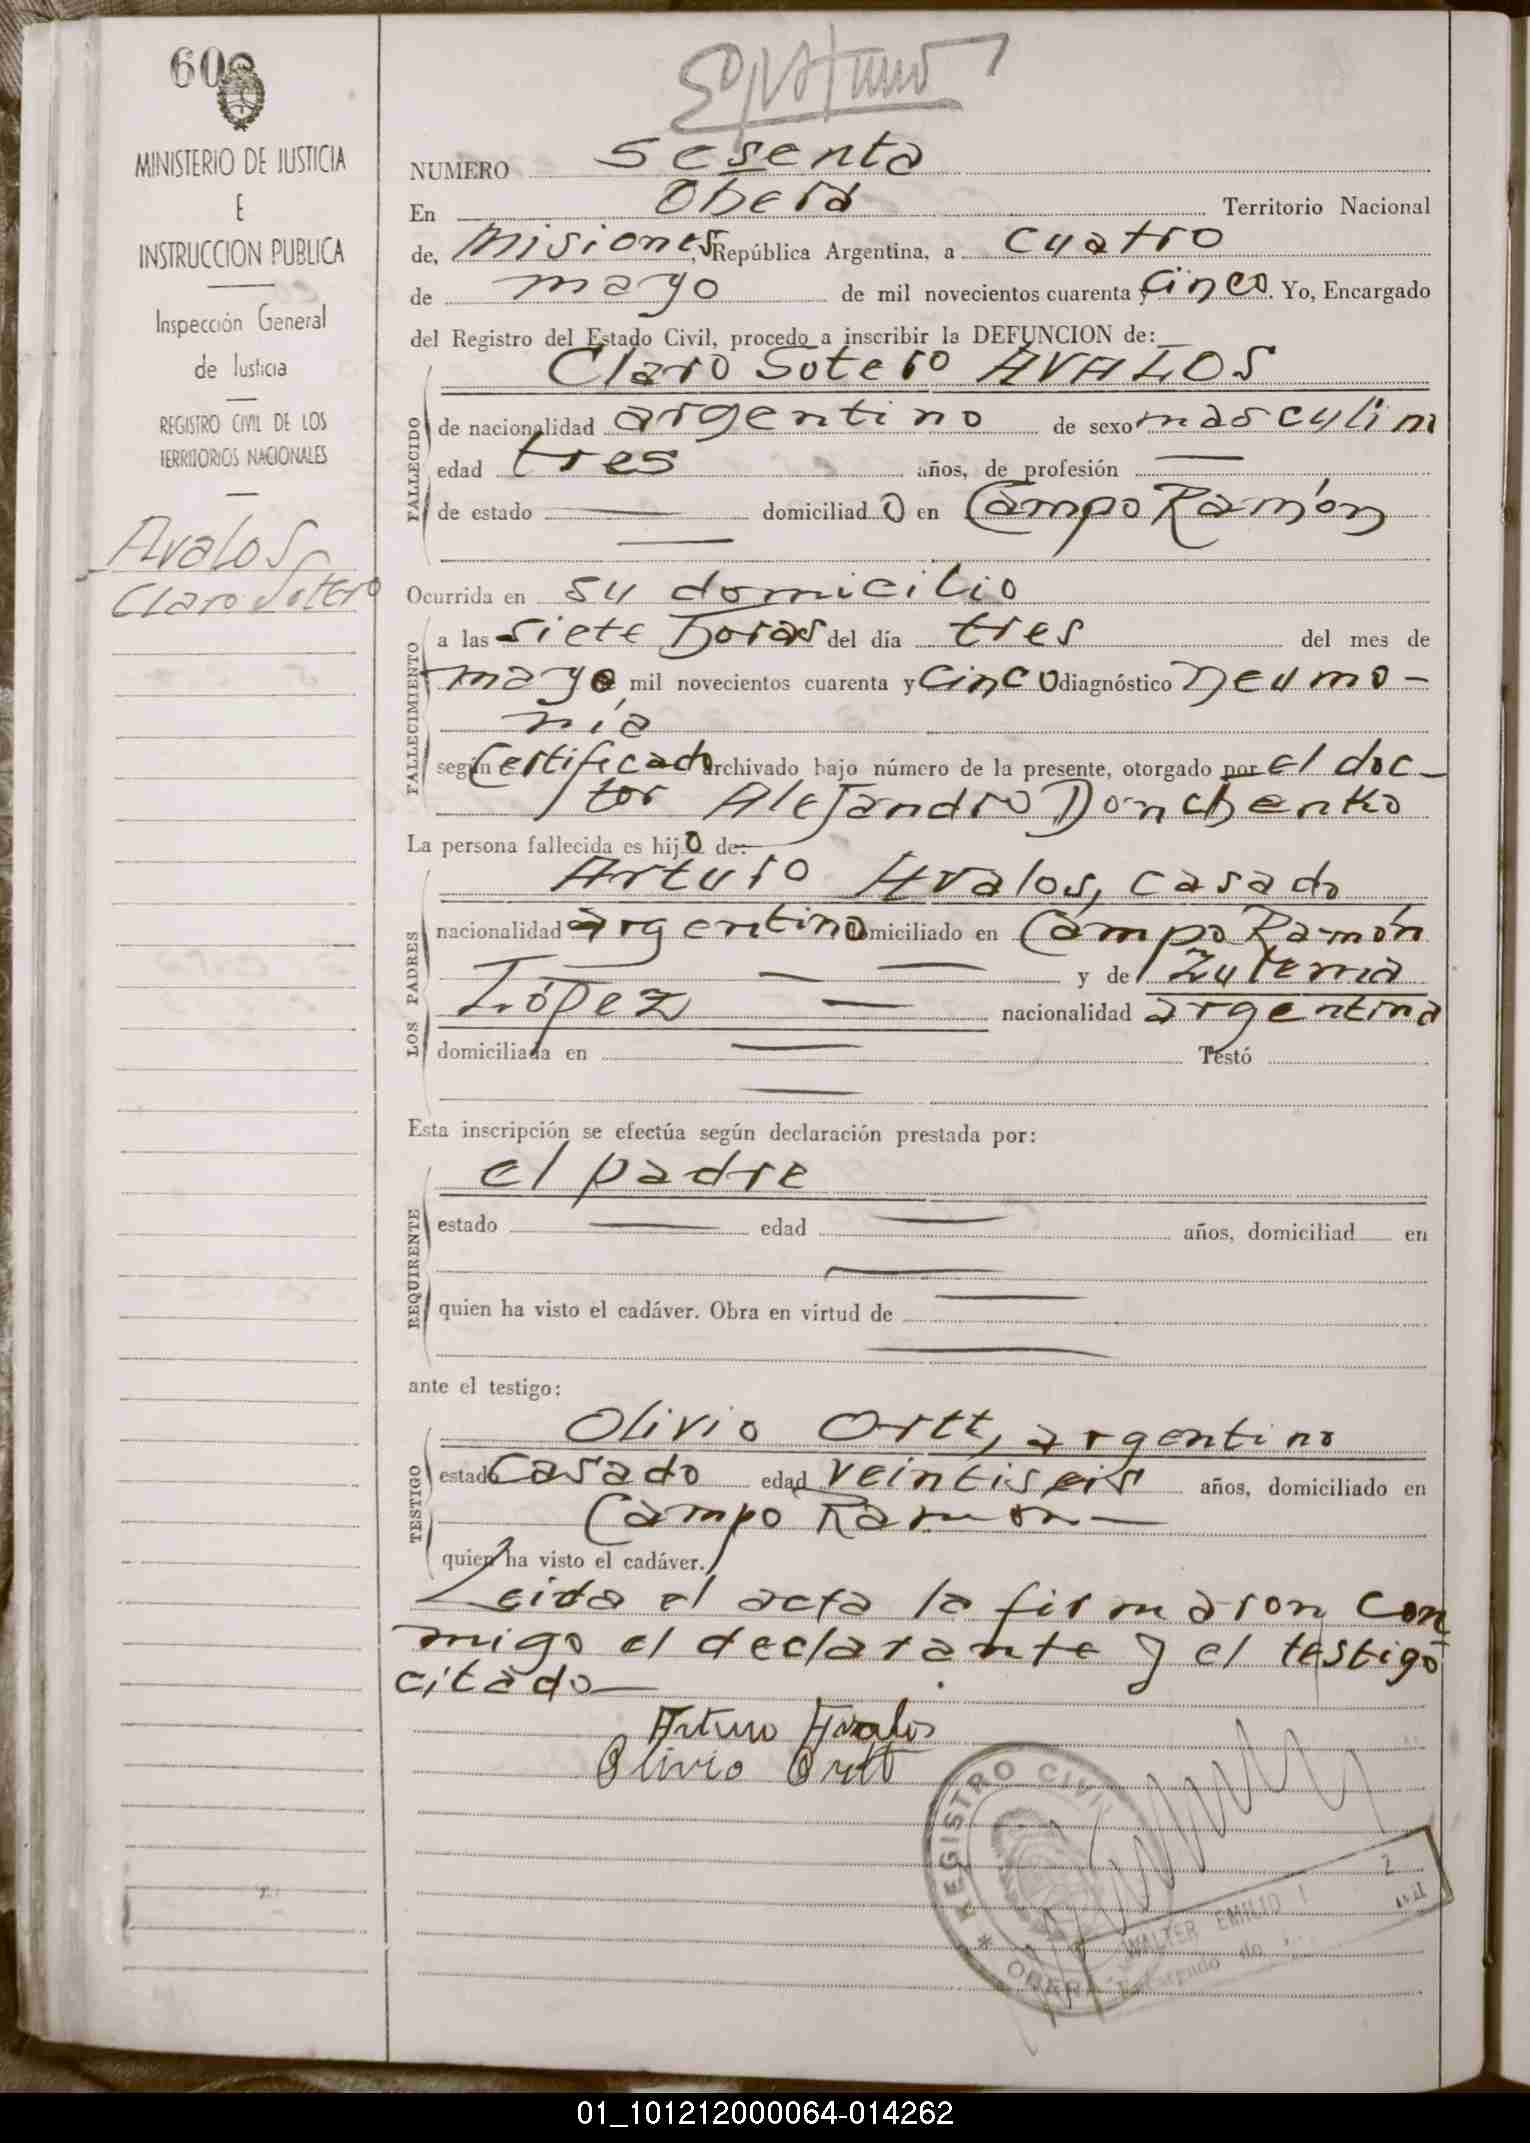 60
MINISTERIO DE JUSTICIA
E
INSTRUCCION PUBLICA
Inspección General
de Justicia
REGISTRO CIVIL DE LOS
TERRITORIOS NACIONALES
Avalos
Claro Sotero
NUMERO sesenta
En Oberá Territorio Nacional
de, Misiones, República Argentina, a cuatro
de mayo de mil novecientos cuarenta y cinco. Yo, Encargado
del Registro del Estado Civil, procedo a inscribir la DEFUNCION de:
Claro Sotero AVALOS
FALLECIDO
de nacionalidad argentino de sexo masculin
edad tres años, de profesión —
de estado — domiciliado en Campo Ramón
—
Ocurrida en su domicilio
FALLECIMIENTO
a las siete horas del día tres del mes de
mayo mil novecientos cuarenta y cinco diagnóstico neumo-
nía
según certificado archivado bajo número de la presente, otorgado por el doc-
tor Alejandro Donchenko
La persona fallecida es hijo de:
LOS PADRES
Arturo Avalos, casado
nacionalidad argentino domiciliado en Campo Ramón
— — y de Zulema
López — nacionalidad argentina
domiciliada en — Testó
—
Esta inscripción se efectúa según declaración prestada por:
REQUIRENTE
el padre
estado — edad — años, domiciliad en
—
quien ha visto el cadáver. Obra en virtud de —
—
ante el testigo:
TESTIGO
Olivio Ortt, argentino
estado casado edad veintiseis años, domiciliado en
Campo Ramón —
quien ha visto el cadáver.
Leida el acta la firmaron con
migo el declarante y el testigo
citado —
Arturo Avalos
Olivio Ortt
REGISTRO CIVIL
* OBERÁ
WALTER EMILIO
Encargado de
01_101212000064-014262